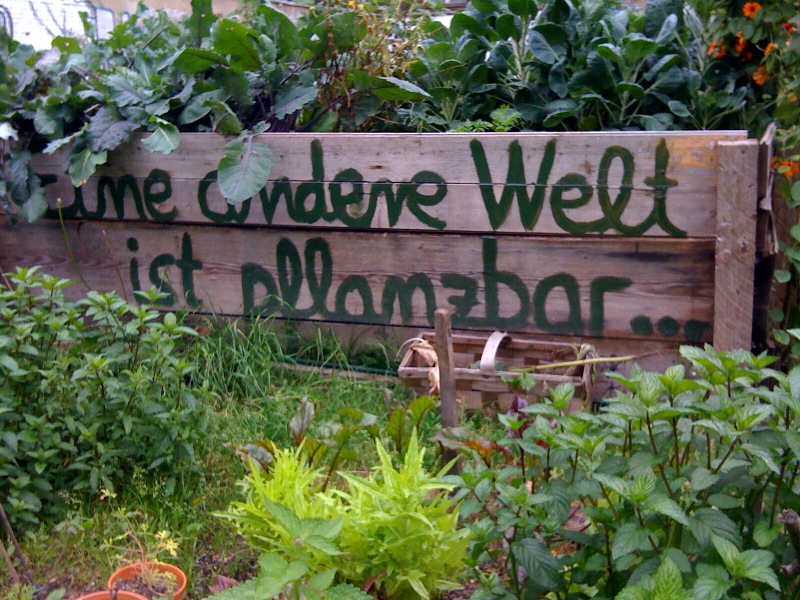 Eine andere Welt
ist pflanzbar...